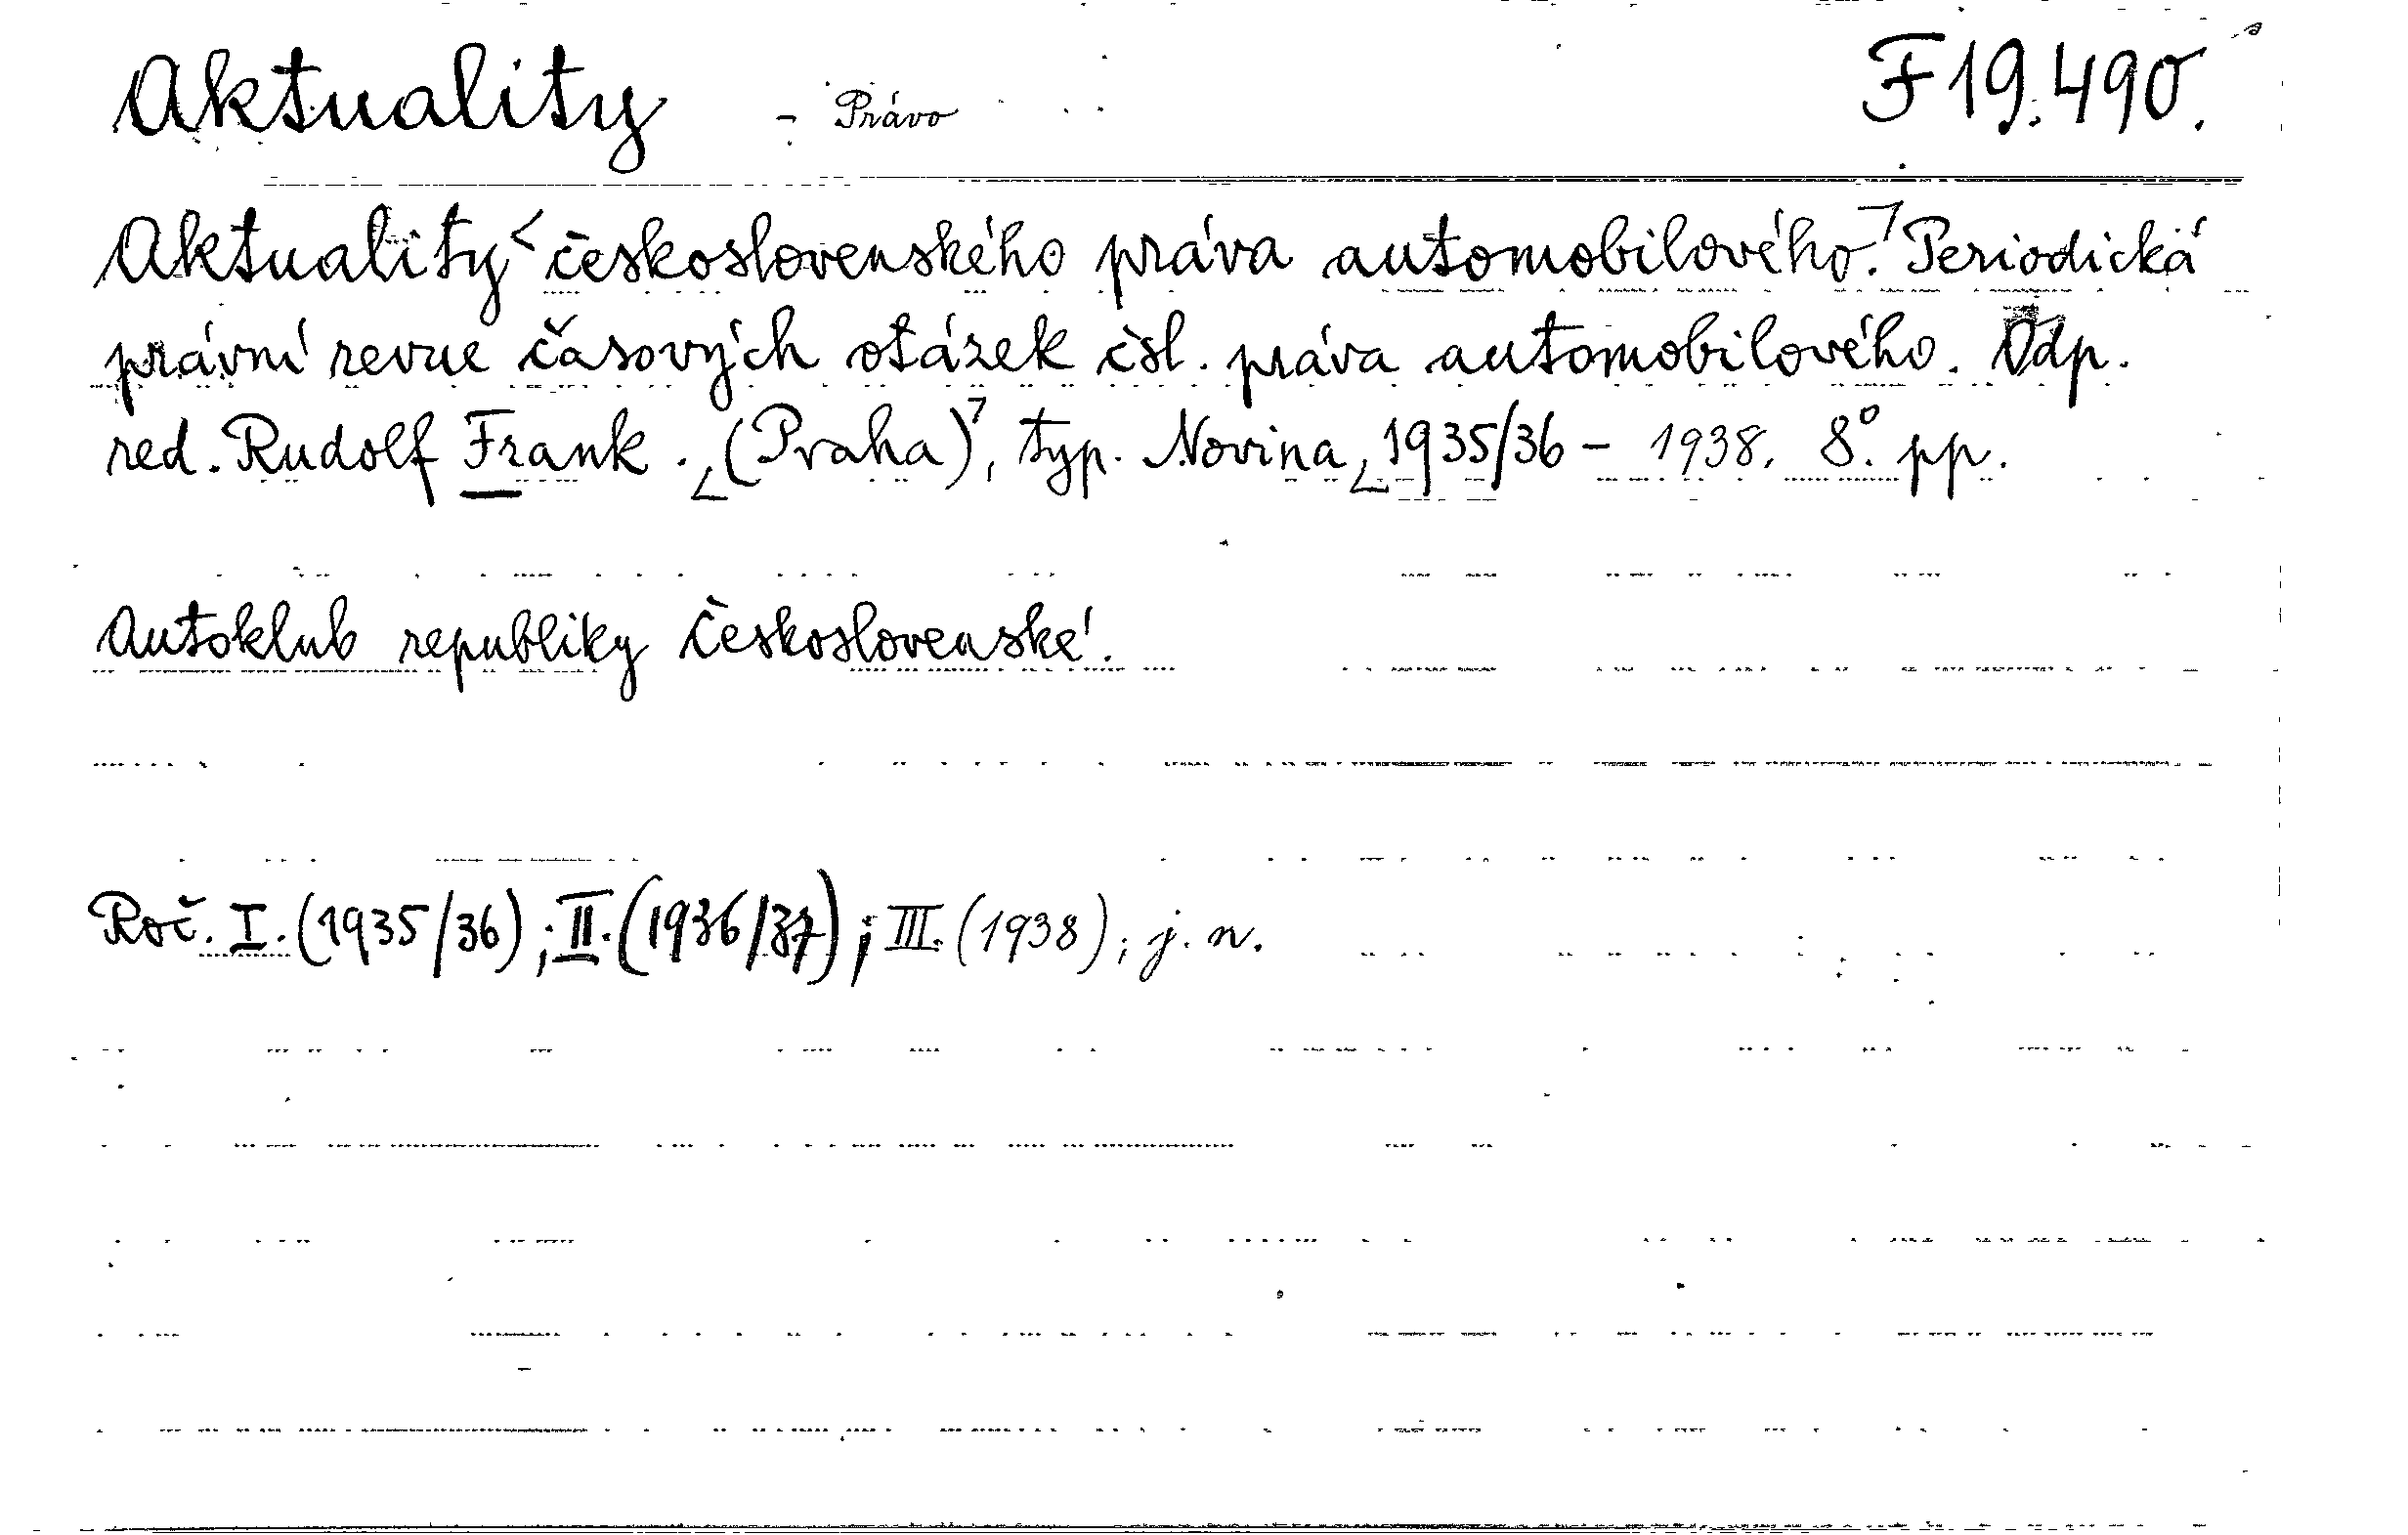 Aktuality - Právo F 19.490.
Aktuality < československého práva automobilového. ┐ Periodická
právní revue časových otázek čsl. práva automobilového. Odp.
red. Rudolf Frank. ∠ (Praha) ┐, typ. Novina, ∠ 1935/36 - 1938. 8°. pp.
Autoklub republiky Československé.
Roč. I. (1935/36); II. (1936/37); III. (1938); j. n.